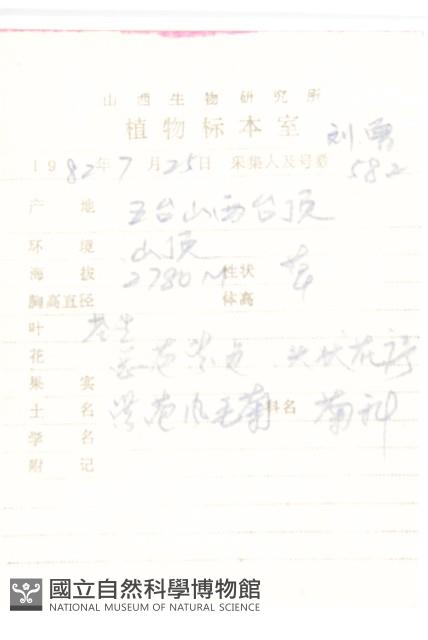 山西生物研究所
植物标本室
刘勇
1982年7月25日 采集人及号数 582
产地 五台山西台顶
环境 山顶
海拔 2780M 性状 草
胸高直径 体高
叶 老生
花 头状花序
果实
土名 风毛菊 科名 菊科
学名
附记
國立自然科學博物館
NATIONAL MUSEUM OF NATURAL SCIENCE